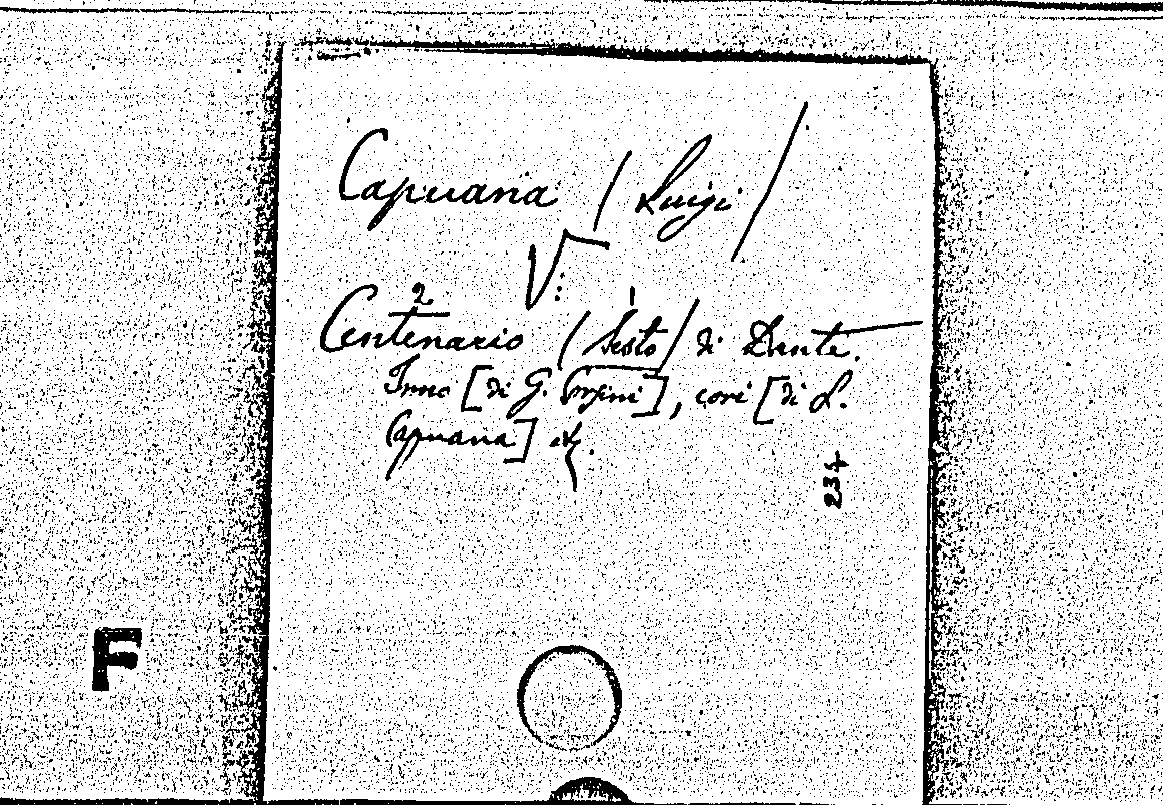 Capuana / Luigi /
V:
2 1
Centenario / Sesto / di Dante.
Inno [di G. ], cori [di L.
Capuana] etc.
234
F